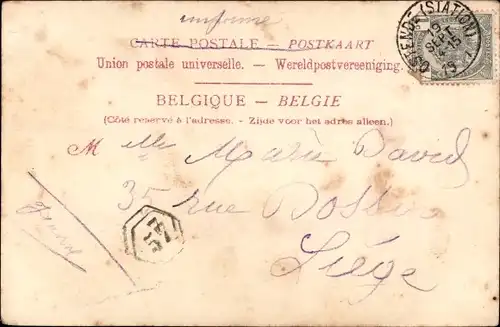 imprimé
CARTE POSTALE — POSTKAART
Union postale universelle. — Wereldpostvereeniging.
BELGIQUE — BELGIE
(Côté réservé à l'adresse. - Zijde voor het adres alleen.)
OSTENDE (STATION)
SEPT
M Mlle Maria David
35 rue
Liége